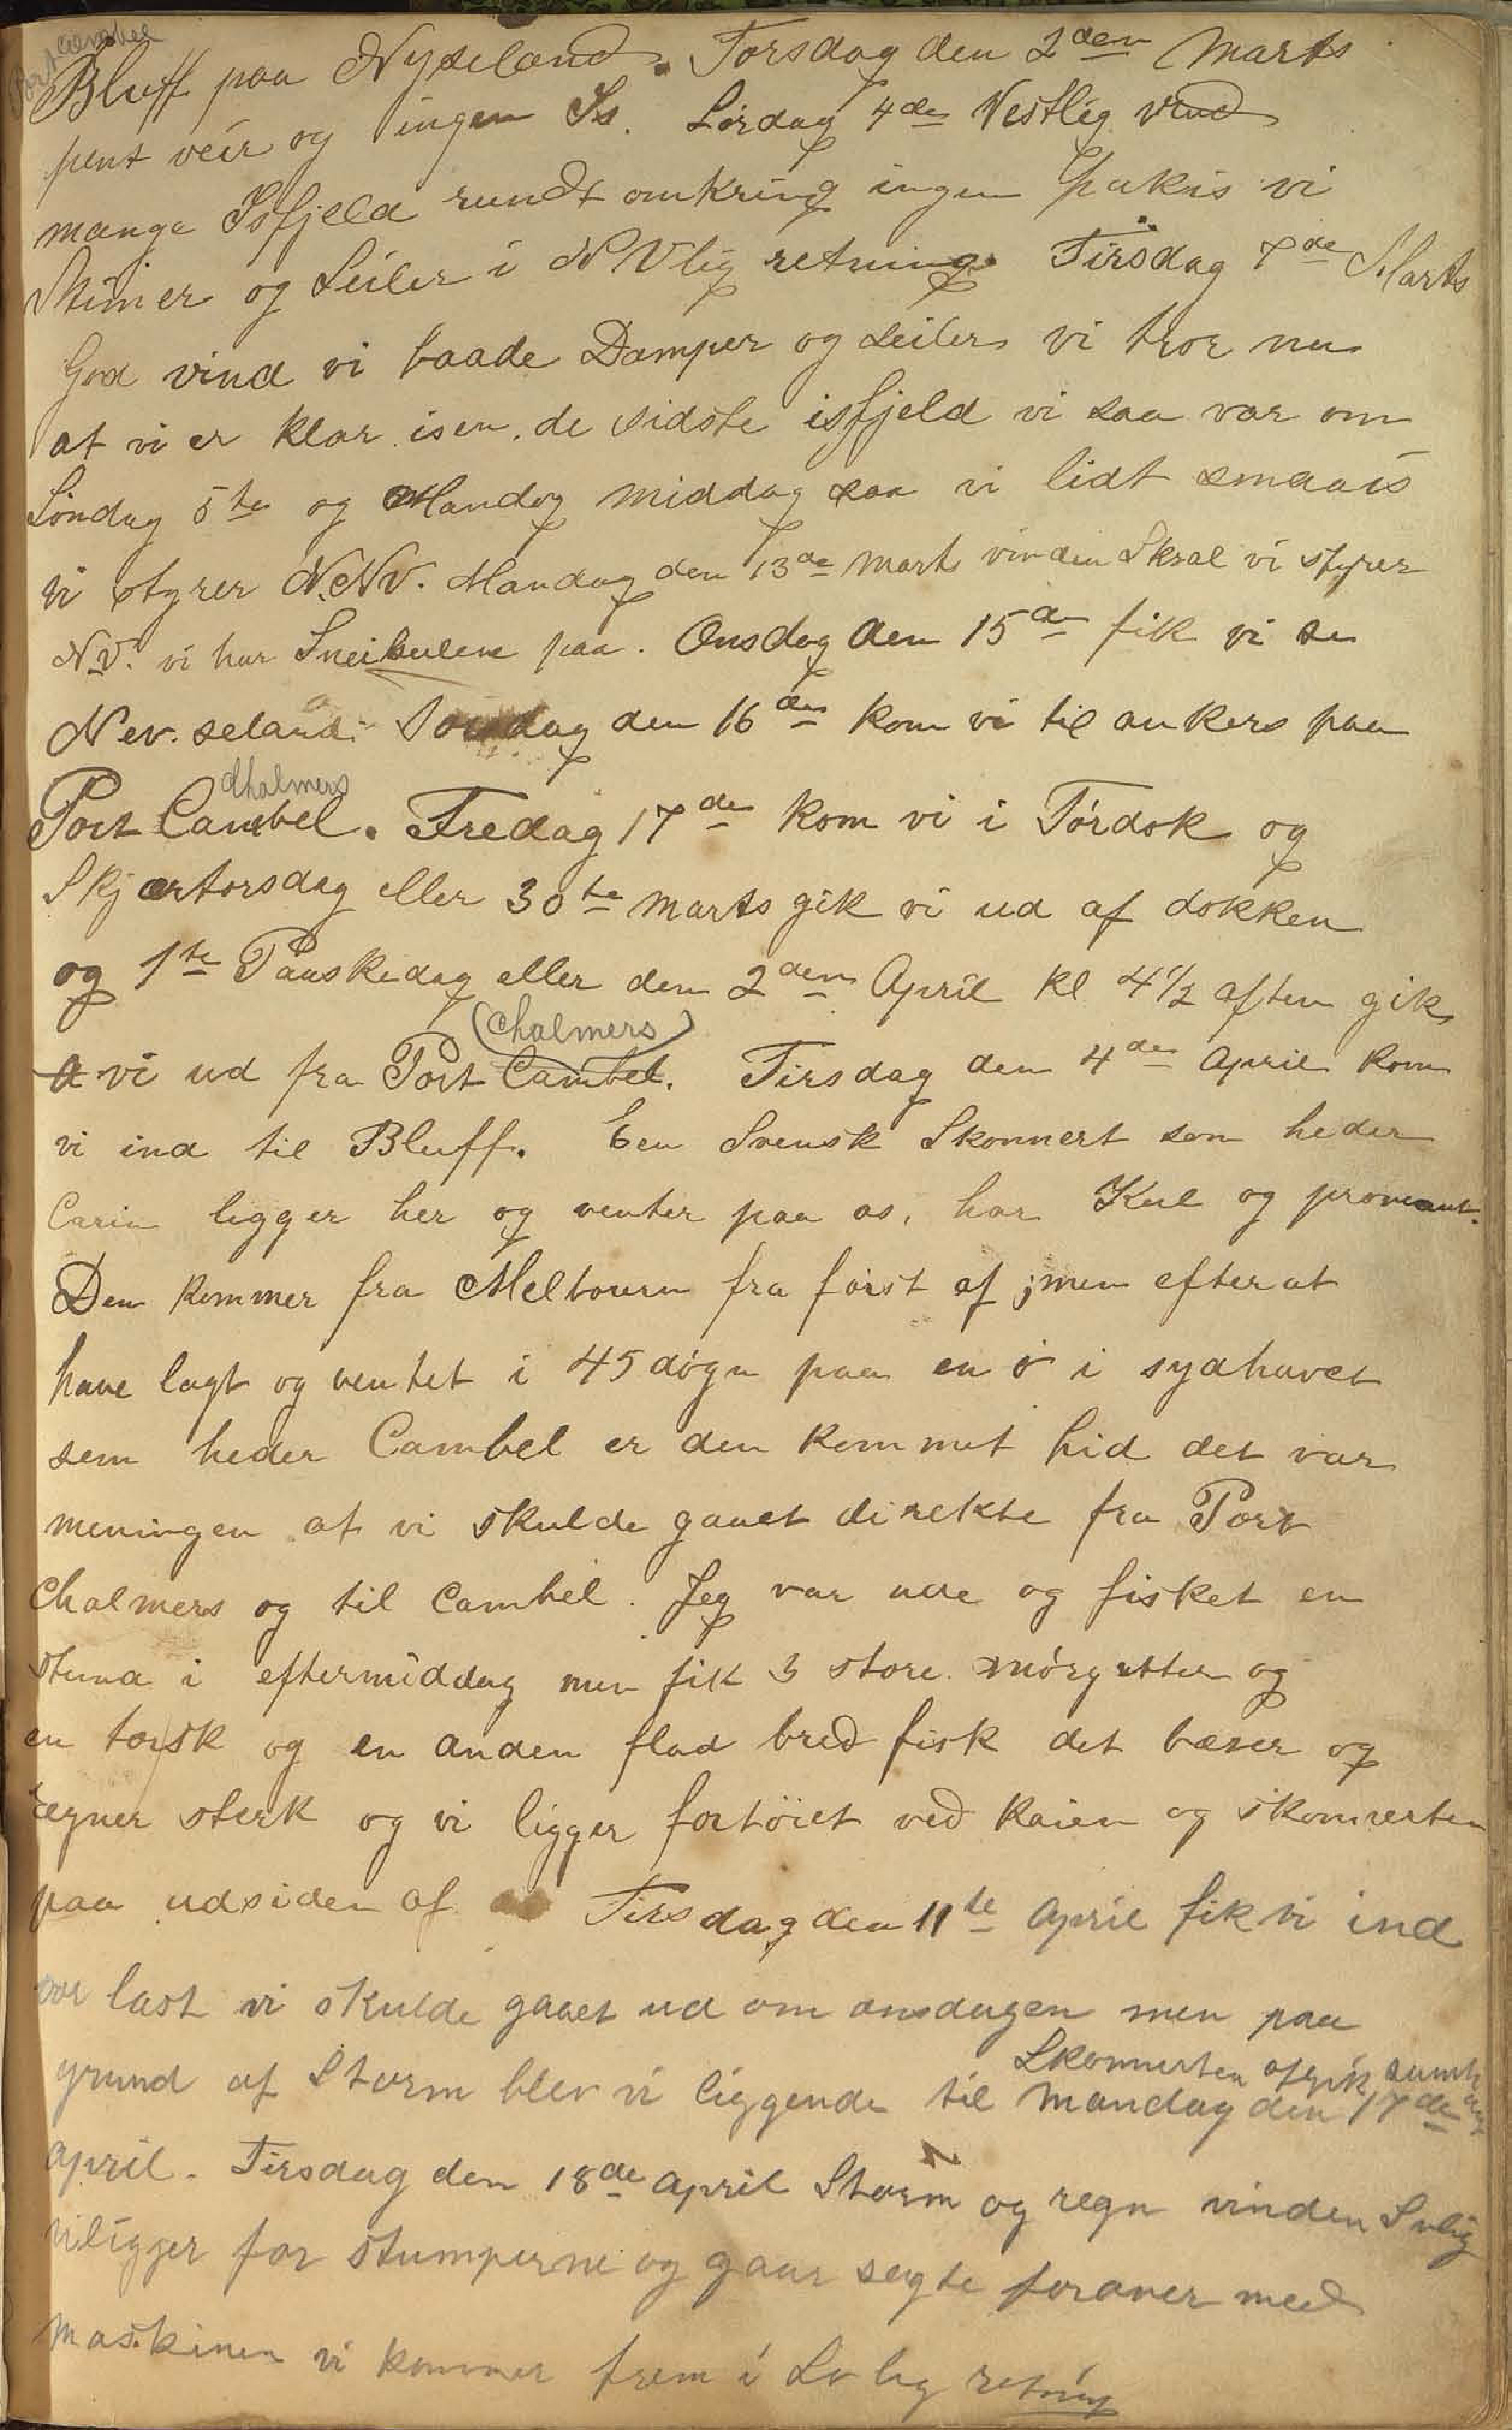 Port Cambel
Bluff paa Nyseland. Torsdag den 2den Marts
pent veir og ingen Is. Lørdag 4de Vestlig vind
mange Isfjeld rundt omkring ingen pakis vi
Stimer og Seiler i NVlig retning. Tirsdag 7de Marts
God vind vi baade Damper og seiler vi tror nu
at vi er klar isen. de sidste isfjeld vi saa var om
Søndag 5te og Mandag middag saa vi lidt smaais
vi styrer N.NV. Mandag den 13de Marts vinden Skral vi styrer
NV. vi har Sneibulene paa. Onsdag den 15de fik vi se
Nev. seland. Torsdag den 16den kom vi til ankers paa
Chalmers
Port Cambel. Fredag 17de kom vi i Tørdok og
Skjærtorsdag eller 30te Marts gik vi ud af dokken
og 1te Paaskedag eller den 2den April Kl 4 1/2 aften gik
(Chalmers)
vi ud fra Port Cambel. Tirsdag den 4de April kom
vi ind til Bluff. Een Svensk Skonnert som heder
Carin ligger her og venter paa os, har Kul og proveant.
Den kommer fra Melbourn fra først af ; men efter at
have lagt og ventet i 45 døgn paa en ø i sydhavet
som heder Cambel er den kommet hid det var
meningen at vi skulde gaaet direkte fra Port
Chalmers og til Cambel. Jeg var ude og fisket en
stund i eftermiddag men fik 3 store
en torsk og en anden flad bred fisk det blæser og
regner sterk og vi ligger fortøiet ved Kaien og skonnerten
paa udsiden af Tirsdag den 11te April fik vi ind
vor last vi skulde gaaet ud om onsdagen men paa
Skonnerten afgik samt
grund af Storm blev vi liggende til Mandag den 17de
April. Tirsdag den 18de April Storm og regn vinden Svlig
vi ligger for stumperne og gaar sagte forover med
Maskinen vi kommer frem i Svlig retning